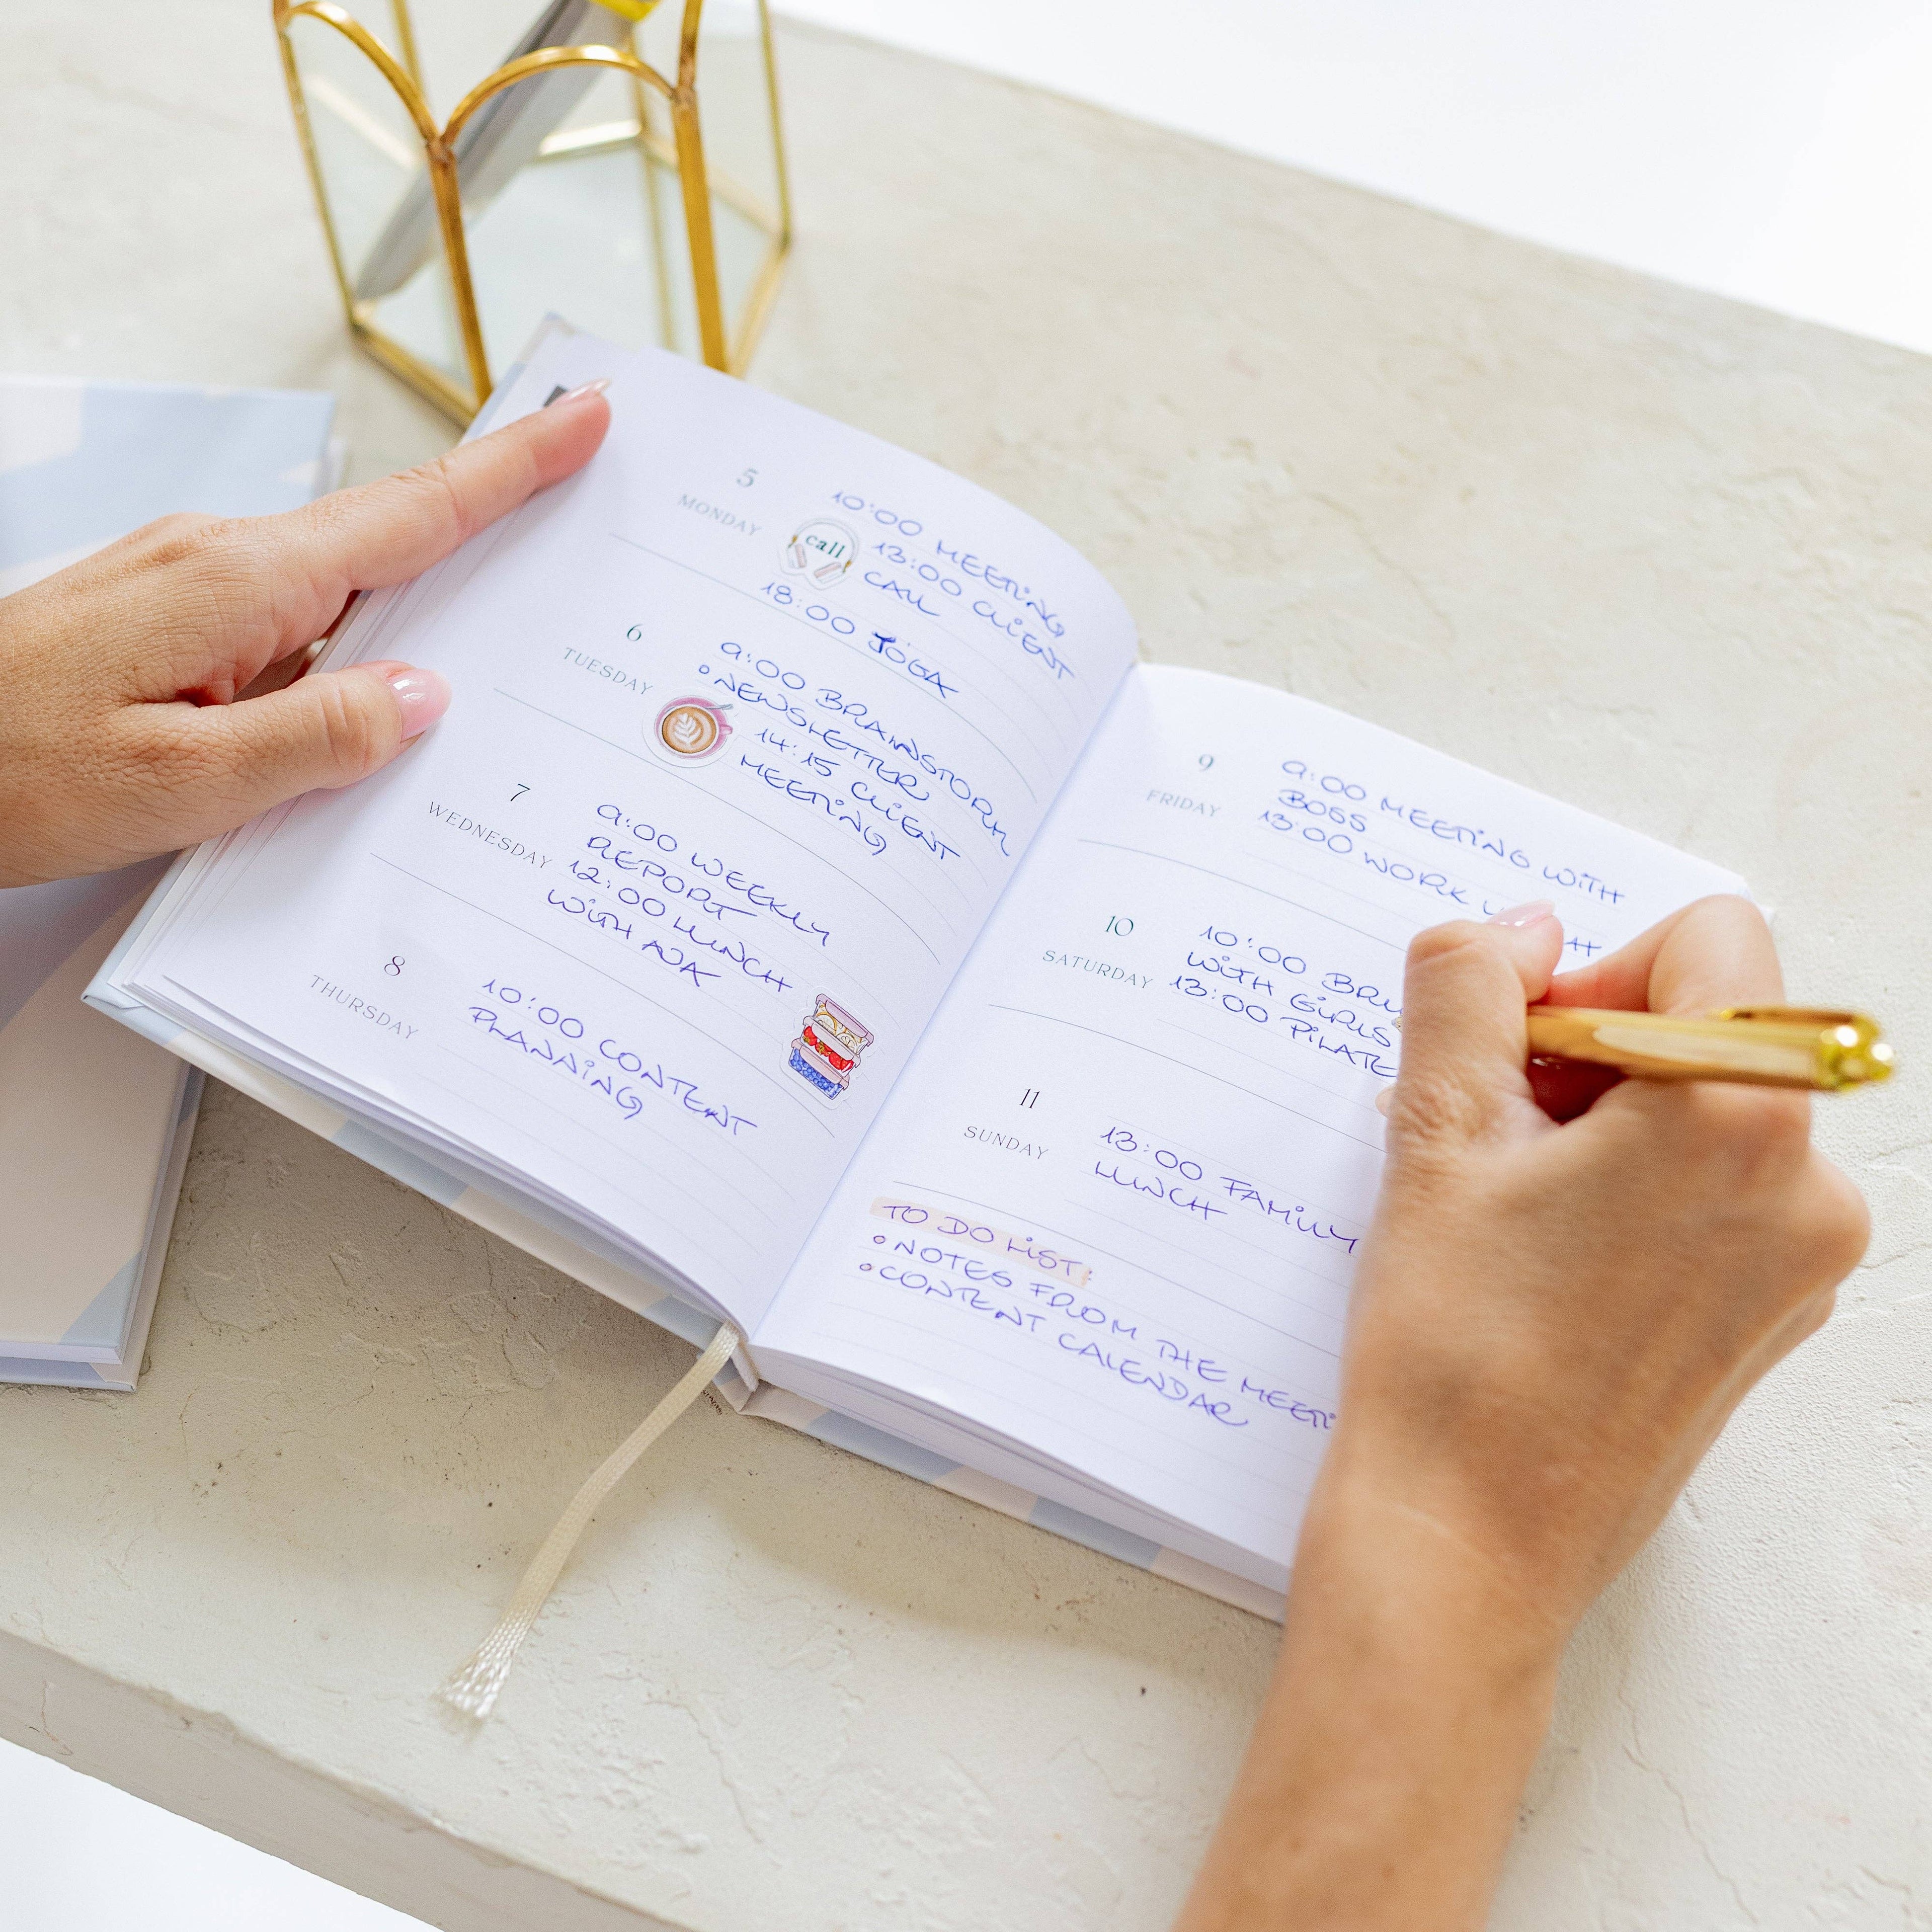 5
MONDAY
10:00 MEETING
call
13:00 CLIENT
CALL
18:00 JOGA
6
TUESDAY
9:00 BRAINSTORM
• NEWSLETTER
14:15 CLIENT
MEETING
7
WEDNESDAY
9:00 WEEKLY
REPORT
12:00 LUNCH
WITH ADA
8
THURSDAY
10:00 CONTENT
PLANNING
9
FRIDAY
9:00 MEETING WITH
BOSS
13:00 WORK
10
SATURDAY
10:00
WITH GIRLS
13:00
11
SUNDAY
13:00 FAMILY
LUNCH
TO DO LIST:
• NOTES FROM THE
• CONTENT CALENDAR